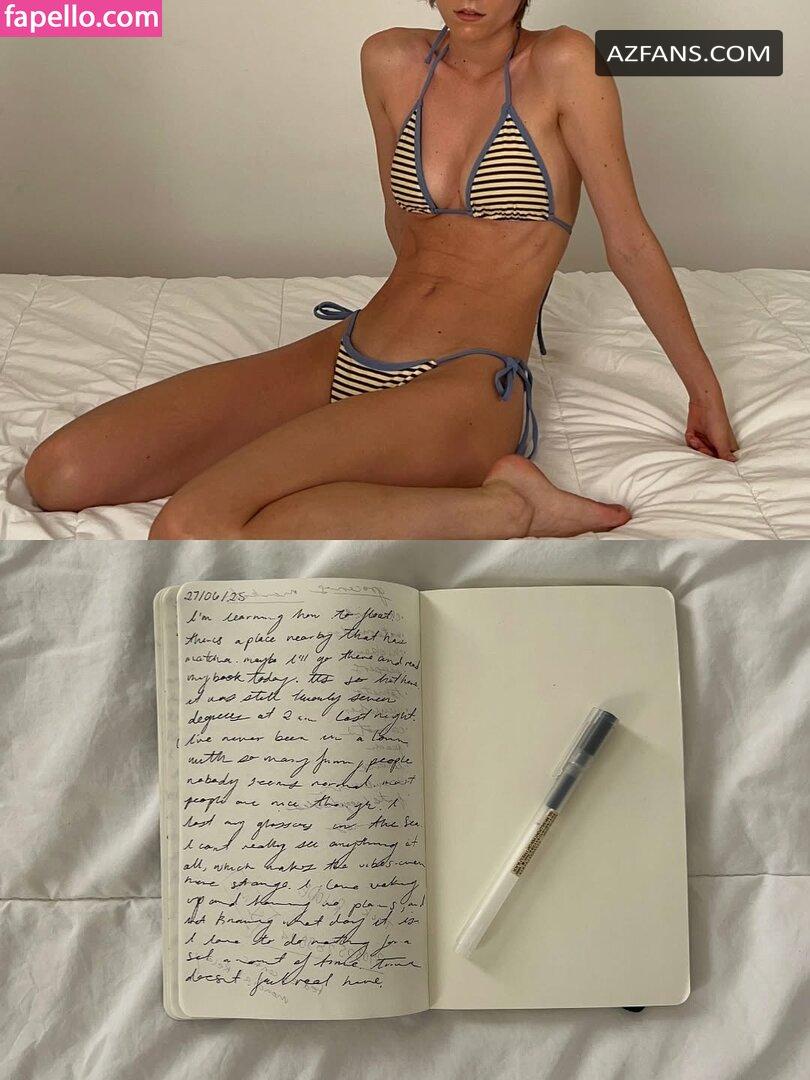 fapello.com
AZFANS.COM
27/06/25
I'm learning how to float.
there's a place nearby that has
matcha. maybe I'll go there and read
my book today. It's so hot here
it was still twenty seven
degrees at 2 am last night.
I've never been in a town
with so many funny people
nobody seems normal. most
people are nice though. I
lost my glasses in the sea.
I can't really see anything at
all, which makes the vibes even
more strange. I love waking
up and having no plans, and
not knowing what day it is
I love to do nothing for a
set amount of time. time
doesn't feel real here.